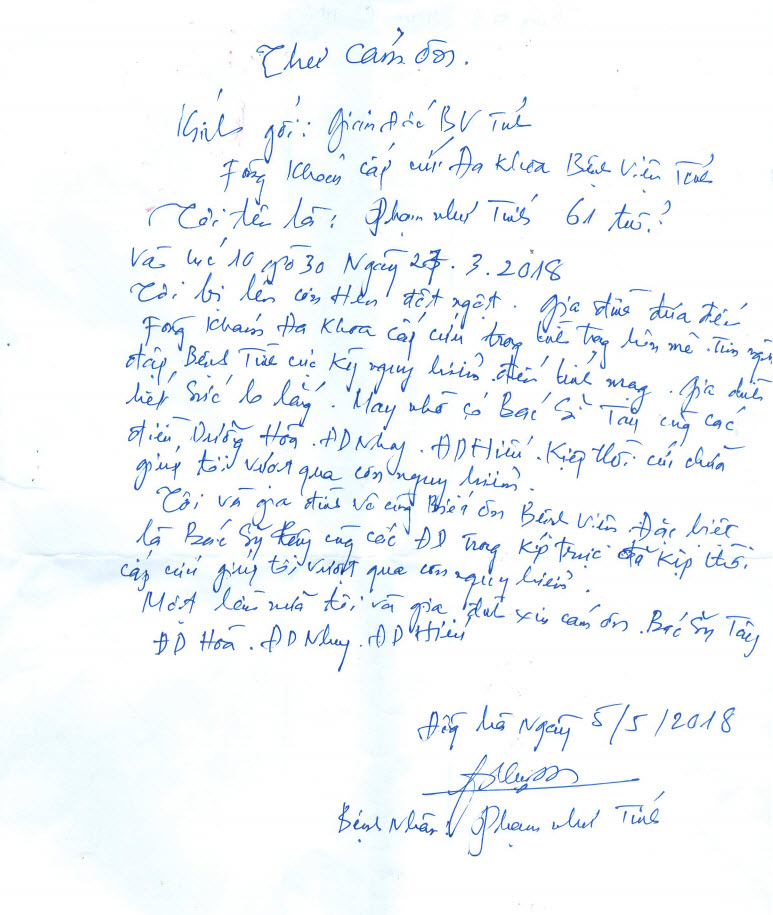 Thư cảm ơn.
Kính gởi: Giám đốc BV Tỉnh
Fòng Khám cấp cứu Đa Khoa Bệnh Viện Tỉnh
Tôi tên là: Phạm như Tính 61 tuổi
Vào lúc 10 giờ 30 Ngày 27.3.2018
Tôi bị lên cơn Hen đột ngột. Gia đình đưa đến
Fòng Khám Đa Khoa cấp cứu trong tình trạng hôn mê. Tim ngừng
đập, Bệnh Tình cực Kỳ nguy hiểm đến tính mạng. Gia đình
hết sức lo lắng. May nhờ có Bác Sỹ Tây cùng các
điều Dưỡng Hoà. ĐD Nhay. ĐD Hiếu. Kiệp thời cứu chữa
giúp tôi vượt qua cơn nguy hiểm.
Tôi và gia đình vô cùng Biết ơn Bệnh Viện Đặc biệt
là Bác Sỹ Tây cùng các ĐD trong kíp trực đã Kịp thời
cấp cứu giúp tôi vượt qua cơn nguy hiểm.
Một lần nữa tôi và gia đình xin cảm ơn. Bác Sỹ Tây
ĐD Hoà. ĐD Nhay. ĐD Hiếu
Đông hà Ngày 5/5/2018
Bệnh Nhân: Phạm như Tính